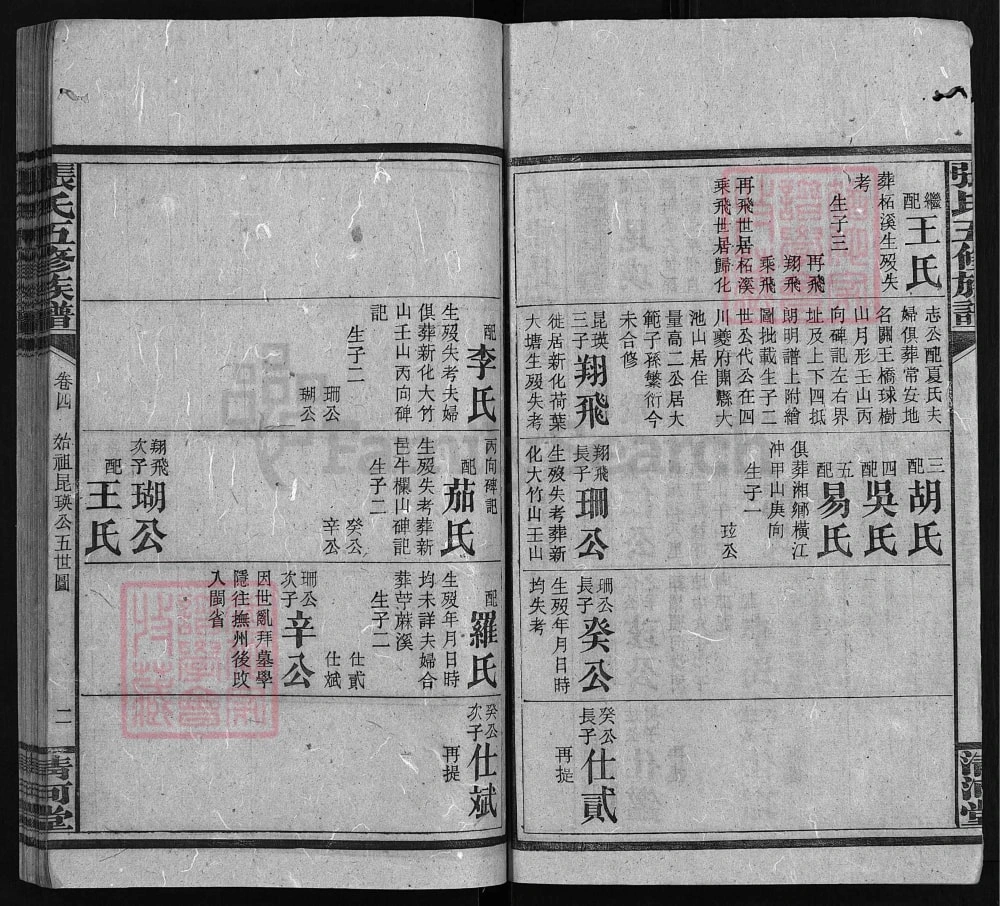 張氏五修族譜
清河堂
繼配 王氏
葬柘溪生歿失
考
生子三
再飛
翔飛
乘飛
再飛世居柘溪
乘飛世居歸化
志公配夏氏夫
婦俱葬常安地
名闢王橋球樹
山月形壬山丙
向碑記左右界
址及上下四抵
朗明譜上附繪
圖批載生子二
世公代公在四
川夔府開縣大
池山居住
量高二公居大
範子孫繁衍今
未合修
昆瑛三子 翔飛
徙居新化荷葉
大塘生歿失考
三配 胡氏
四配 吳氏
五配 易氏
俱葬湘鄉橫江
冲甲山庚向
生子一
玹公
翔飛長子 珊公
生歿失考葬新
化大竹山壬山
珊公長子 癸公
生歿年月日時
均失考
癸公長子 仕貳
再提
配 李氏
生歿失考夫婦
俱葬新化大竹
山壬山丙向碑
記
生子二
珊公
瑚公
丙向碑記
配 茄氏
生歿失考葬新
邑牛欄山碑記
生子二
癸公
辛公
翔飛次子 瑚公
配 王氏
配 羅氏
生歿年月日時
均未詳夫婦合
葬苧蔴溪
生子二
仕貳
仕斌
珊公次子 辛公
因世亂拜墓學
隱往撫州後改
入閩省
癸公次子 仕斌
再提
張氏五修族譜
卷四
始祖昆瑛公五世圖
二
清河堂